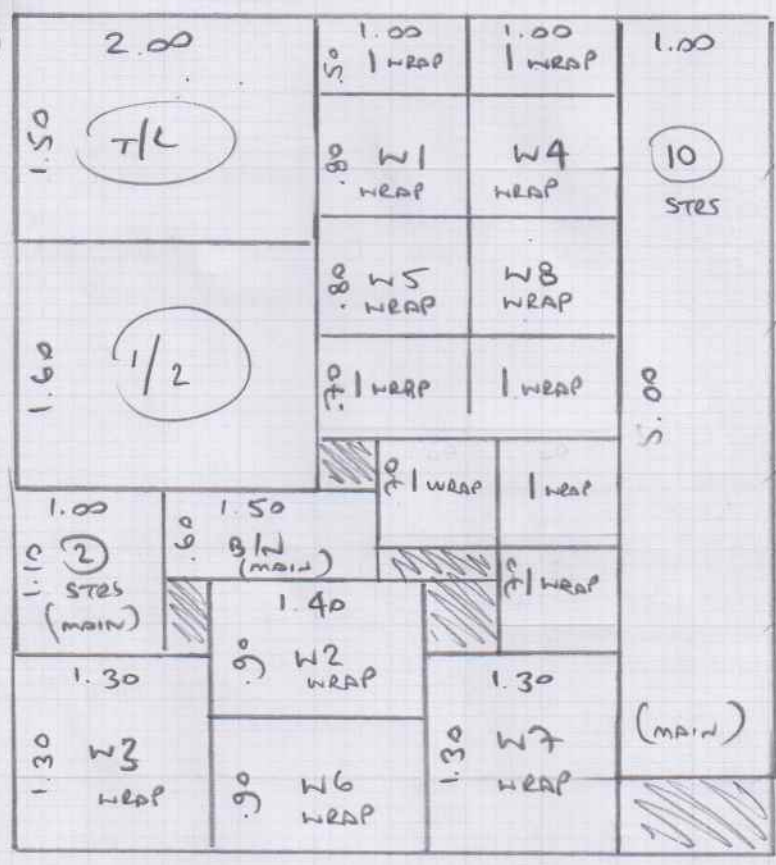 2.00
1.50
T/L
1.60
1/2
1.00
1.00
.50
1 WRAP
1 WRAP
.80
W1
WRAP
W4
WRAP
.80
W5
WRAP
W8
WRAP
.70
1 WRAP
1 WRAP
.70
1 WRAP
1 WRAP
1 WRAP
1.00
10
STRS
5.00
(MAIN)
1.00
1.10
2
STRS
(MAIN)
1.50
.60
(MAIN)
1.40
.90
W2
WRAP
.90
W6
WRAP
1.30
1.30
W3
WRAP
1.30
1.30
W7
WRAP